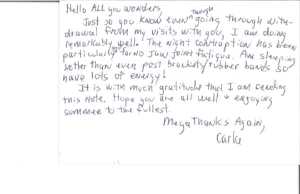 Hello All you wonders,
Just so you know even though going through with-
drawal from my visits with you, I am doing
remarkably well. The night contraption has been
particularly good no jaw joint fatigue. Am sleeping
better than even post brackets/rubber bands so
have lots of energy!
It is with much gratitude that I am sending
this note. Hope you are all well & enjoying
summer to the fullest.
Mega Thanks Again,
Carla